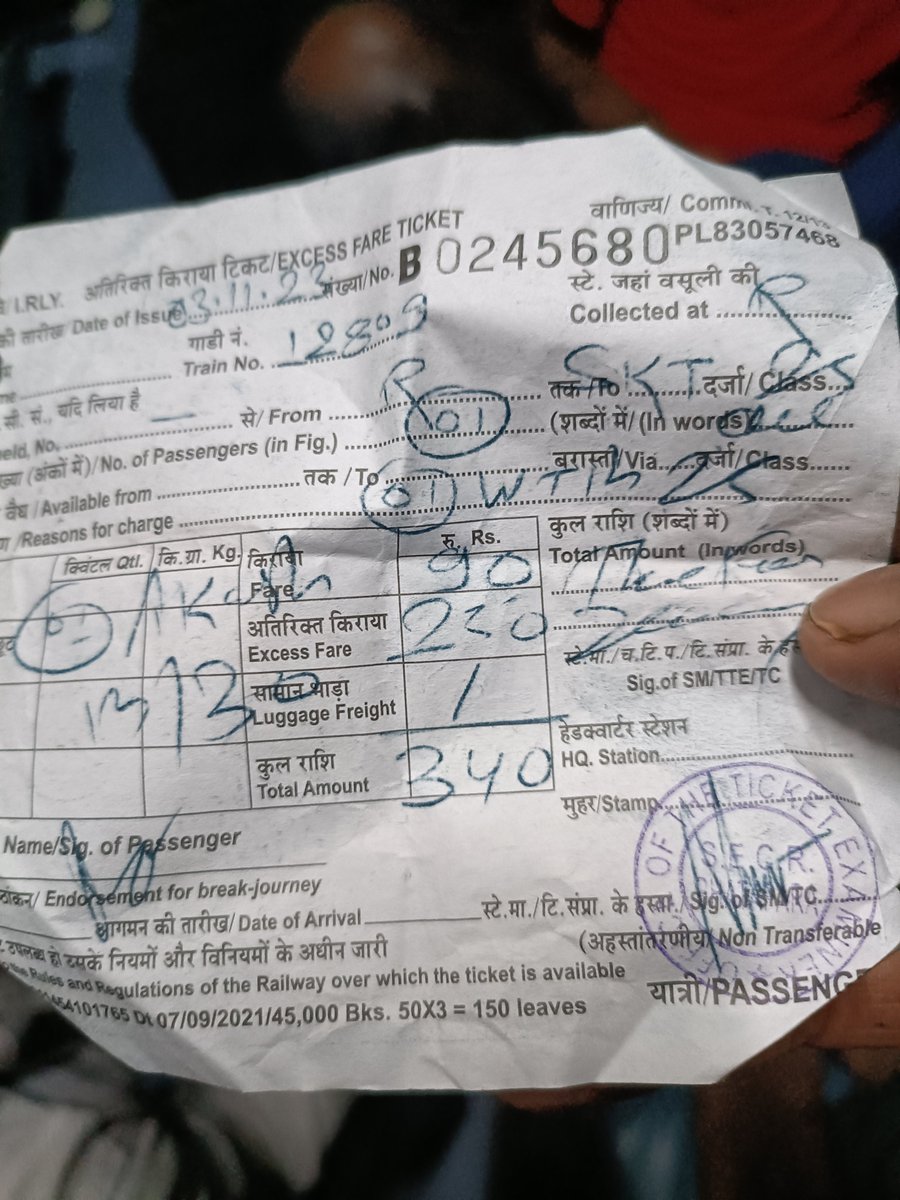 वाणिज्य/ Comm. T. 12/13
I.RLY. अतिरिक्त किराया टिकट/EXCESS FARE TICKET
संख्या/No. B 0245680 PL83057468
की तारीख/ Date of Issue 03.11.23
स्टे. जहां वसूली की
Collected at R
गाडी नं.
Train No. 12809
सी. सं., यदि लिया है —
से/ From R तक/To SKT दर्जा/ Class
held, No.
(अंकों में)/No. of Passengers (in Fig.) 01 (शब्दों में/ (In words)
वैध /Available from तक /To बरास्ता/Via दर्जा/Class
/Reasons for charge 01 WT
क्विंटल Qtl. कि.ग्रा. Kg. किराया रु. Rs.
Fare 90
कुल राशि (शब्दों में)
Total Amount (In words)
अतिरिक्त किराया
Excess Fare 250
स्टे.मा./च.टि.प./टि.संप्रा. के हस्
Sig.of SM/TTE/TC
सामान भाड़ा
Luggage Freight /
हेडक्वार्टर स्टेशन
HQ. Station
कुल राशि
Total Amount 340
मुहर/Stamp
OF THE TICKET EXAMINER
S.E.C.R.
Name/Sig. of Passenger
/ Endorsement for break-journey
आगमन की तारीख/ Date of Arrival
स्टे.मा./टि.संप्रा. के हस्ता./Sig. of SM/TC
(अहस्तांतरणीय/ Non Transferable
उपलब्ध हो उसके नियमों और विनियमों के अधीन जारी
the Rules and Regulations of the Railway over which the ticket is available
यात्री/PASSENG
54101765 Dt 07/09/2021/45,000 Bks. 50X3 = 150 leaves